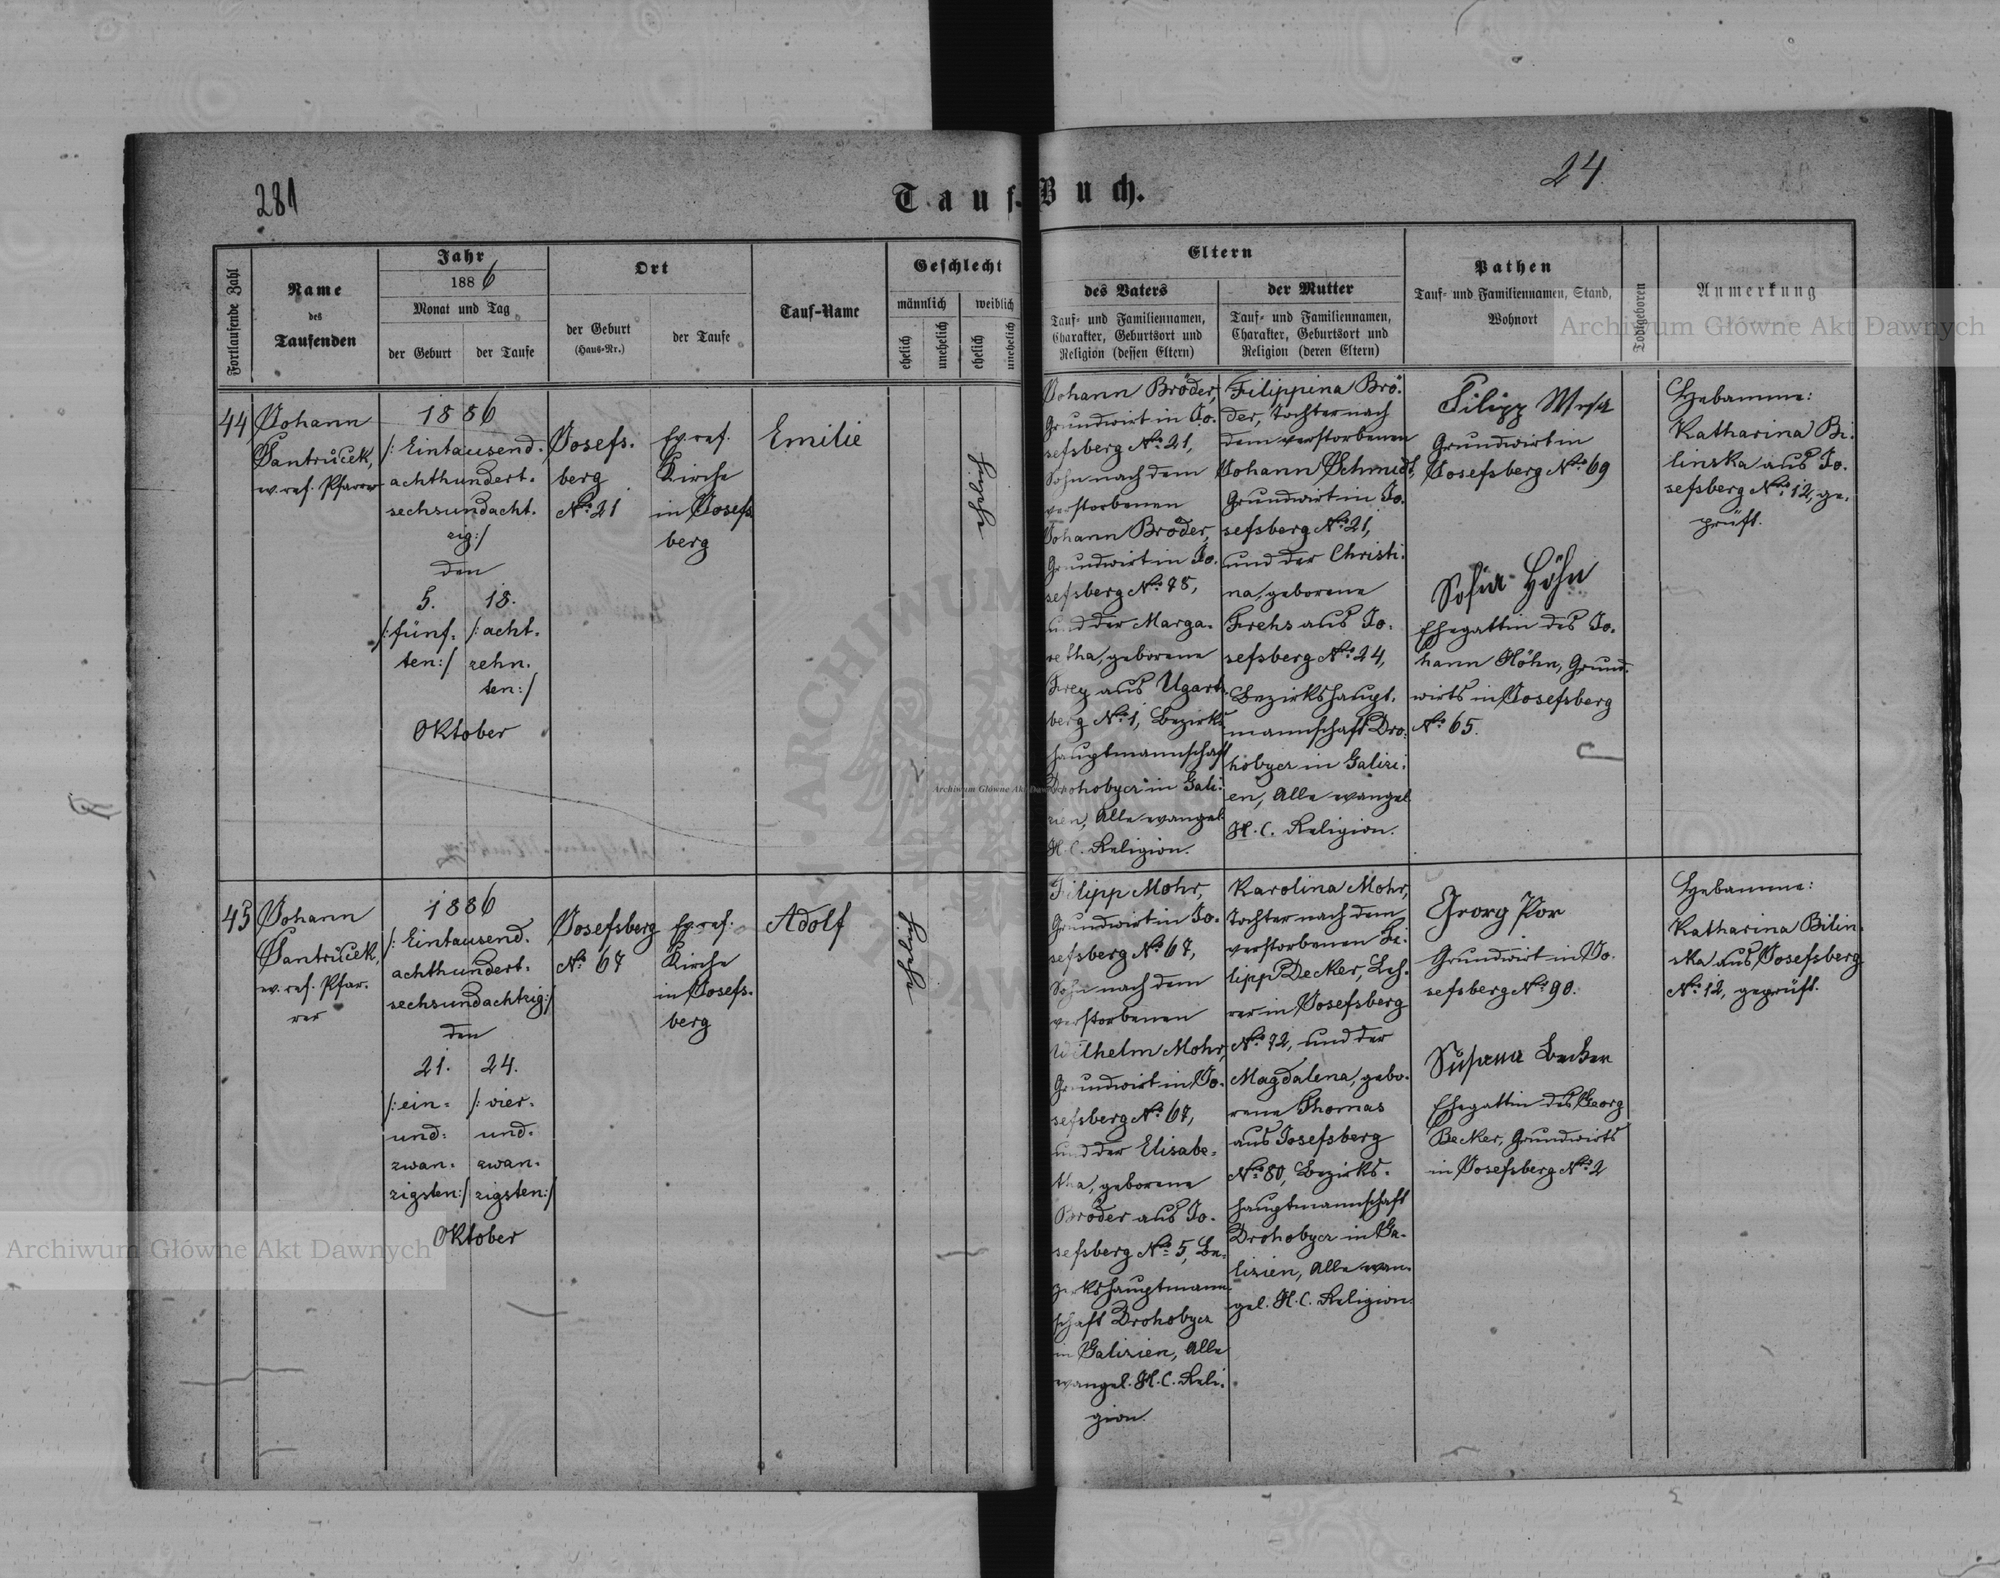 281
24
Tauf-Buch.
Fortlaufende Zahl
Name
des
Taufenden
Jahr
1886
Monat und Tag
der Geburt
der Taufe
Ort
der Geburt
(Haus-Nr.)
der Taufe
Tauf-Name
Geschlecht
männlich
weiblich
ehelich
unehelich
ehelich
unehelich
Eltern
des Vaters
Tauf- und Familiennamen,
Charakter, Geburtsort und
Religion (dessen Eltern)
der Mutter
Tauf- und Familiennamen,
Charakter, Geburtsort und
Religion (deren Eltern)
Pathen
Tauf- und Familiennamen, Stand,
Wohnort
Todtgeboren
Anmerkung
44
Johann
Šantrůček,
ev. ref. Pfarrer
1886
/: Eintausend-
achthundert-
sechsundacht-
zig :/
den
5.
/: fünf-
ten :/
18.
/: acht-
zehn-
ten :/
Oktober
Josefs-
berg
No. 21
Ev. ref.
Kirche
in Josefs
berg
Emilie
Eheliche
Johann Bröder,
Grundwirt in Jo-
sefsberg No. 21,
Sohn nach dem
verstorbenen
Johann Bröder,
Grundwirt in Jo-
sefsberg No. 78,
und der Marga-
retha, geborene
Frey aus Ugarts-
berg No. 1, Bezirks
hauptmannschaft
Drohobycz in Gali-
zien, Alle evangel.
H. C. Religion.
Filippina Brö-
der, Tochter nach
dem verstorbenen
Johann Schmidt,
Grundwirt in Jo-
sefsberg No. 21,
und der Christi-
na, geborene
Krehs aus Jo-
sefsberg No. 24,
Bezirkshaupt-
mannschaft Dro-
hobycz in Galizi-
en, Alle evangel.
H. C. Religion.
Filipp
Grundwirt in
Josefsberg No. 69
Sofia Höhn
Ehegattin des Jo-
hann Höhn, Grund-
wirts in Josefsberg
No. 65.
Hebamme:
Katharina Bi-
linska aus Jo-
sefsberg No. 12, ge-
prüft.
45
Johann
Šantrůček,
ev. ref. Pfar-
rer
1886
/: Eintausend-
achthundert-
sechsundachtzig :/
den
21.
/: ein-
und-
zwan-
zigsten :/
24.
/: vier-
und-
zwan-
zigsten :/
Oktober
Josefsberg
No. 67
Ev. ref.
Kirche
in Josefs-
berg
Adolf
Eheliche
Filipp Mohr,
Grundwirt in Jo-
sefsberg No. 67,
Sohn nach dem
verstorbenen
Wilhelm Mohr,
Grundwirt in Jo-
sefsberg No. 67,
und der Elisabe-
tha, geborene
Bröder aus Jo-
sefsberg No. 5, Be-
zirkshauptmann-
schaft Drohobycz
in Galizien, Alle
evangel. H. C. Reli-
gion.
Karolina Mohr,
Tochter nach dem
verstorbenen Fi-
lipp Decker, Leh-
rer in Josefsberg
No. 72, und der
Magdalena, gebo-
rene Thomas
aus Josefsberg
No. 80, Bezirks-
hauptmannschaft
Drohobycz in Ga-
lizien, Alle evan-
gel. H. C. Religion.
Georg Por
Grundwirt in Jo-
sefsberg No. 90.
Susana Becker
Ehegattin des Georg
Becker, Grundwirts
in Josefsberg No. 2
Hebamme:
Katharina Bilin-
ska aus Josefsberg
No. 12, geprüft.
Archiwum Główne Akt Dawnych
Archiwum Główne Akt Dawnych
Archiwum Główne Akt Dawnych